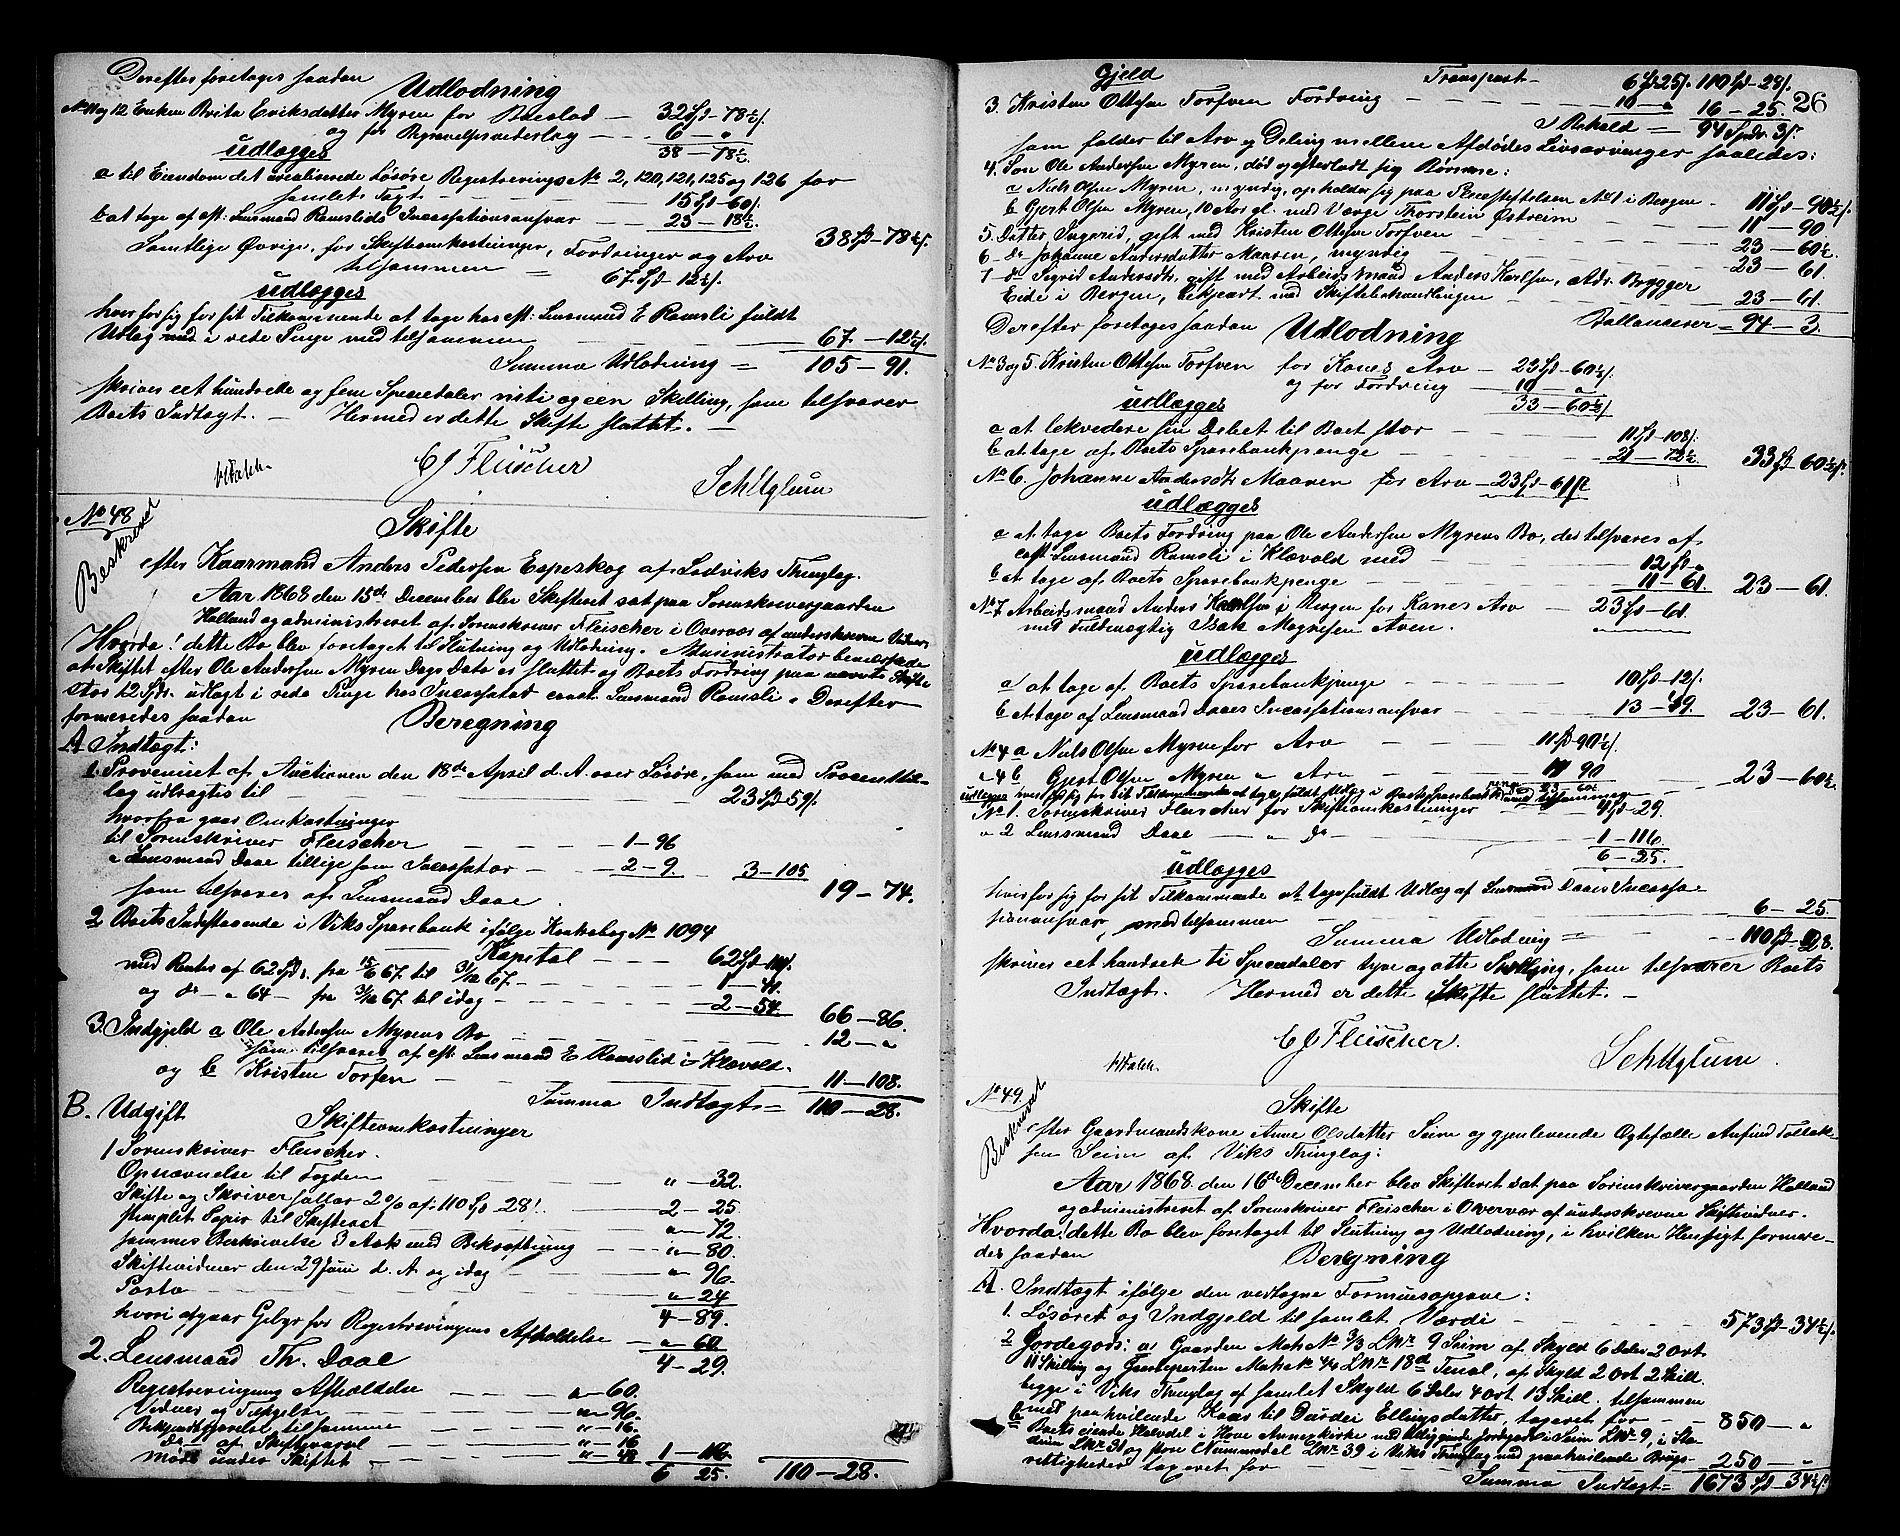 Derefter foretages saadan
Udlodning
No 11 og 12. Enken Brita Eriksdatter Myren for Boeslod — 32 Spd – 78½ s.
og for Begravelsesvederlag — 6 – "
38 – 78½
udlægges
a til Eiendom det uvalierede Løsøre Registrerings No 2, 120, 121, 125 og 126 for
samlet Taxt — 15 Spd – 60 s.
b at tage af cst: Lensmand Ramslids Incassationsansvar — 23 – 18½
38 Spd – 78½ s.
Samtlige Øvrige, for Skifteomkostninger, Fordringer og Arv
tilsammen = 67 Spd – 12½ s.
udlægges
hver for sig for sit Tilkommende at tage hos cst: Lensmand E Ramsli fuldt
Udlæg med i rede Penge med tilsammen — 67 – 12½ s.
Summa Udlodning = 105 – 91.
skriver eet hundrede og fem Speciedaler niti og een Skilling, som tilsvarer
Boets Indtægt. — Hermed er dette Skifte sluttet. —
CJ Fleischer
SchUglum
No 48
Beskrevet
Skifte
efter Kaarmand Anders Pedersen Espeskog af Ladviks Thinglag.
Aar 1868 den 15de December blev Skifteret sat paa Sorenskrivergaarden
Holland og administreret af Sorenskriver Fleischer i Overvær af underskrevne Vidner.
Hvorda! dette Bo blev foretaget til Slutning og Udlodning. Administrator bemærkede
at Skiftet efter Ole Andersen Myren Dags Dato er sluttet og Boets Fordring paa nævnte Skifte
stor 12 Spd. udlagt i rede Penge hos Incassator const. Lensmand Ramsli. Derefter
formeredes saadan
Beregning
A Indtægt:
1. Provenuet af Auctionen den 18de April d. A. over Løsøre, som med Procenttil-
læg udbragtes til — 23 Spd 59 s.
hvorfra gaar Omkostninger
til Sorenskriver Fleischer — 1 – 96
" Lensmand Daae tillige som Incassator — 2 – 9. 3 – 105
som tilsvares af Lensmand Daae 19 – 74.
2 Boets Indestaaende i Viks Sparebank ifølge Kontrabog No 1094
Kapital — 62 Spd
med Renter af 62 Spd. fra 15/6 67 til 31/12 67. —
og do – " 64 – fra 31/12 67 til idag — 2 – 54 66 – 86.
3. Indgjeld a Ole Andersen Myrens Bo — 12 – "
som tilsvares af cst. Lensmand E Ramslid i Klævold.
og b Kristen Torfven — 11 – 108.
Summa Indtægt = 110 – 28.
B. Udgift
Skifteomkostninger
1 Sorenskriver Fleischer.
Opnævnelse til Fogden — " – 32.
Skifte og Skriversallær 2 % af 110 Spd 28 s. — 2 – 25
stemplet Papir til Skifteact — " – 72.
sammes Beskrivelse 3 Ark med Bekræftning — " – 80.
Skiftevidner den 29 Juni d. A. og idag — " – 96.
Porto — " – 24
4 – 89.
hvori afgaar Gebyr for Registreringens Afholdelse — " – 60
4 – 29.
2. Lensmand Th. Daae
Registrerings Afholdelse — " – 60.
Vidner og Tilsigelse — " – 96.
Bekjendtgjørelse tilsammen — " – 16.
do – af Skiftevarsel — " – 16
Møde under Skiftet — " – 48 1 – 116
6 25. 110 – 28.
26
Gjeld Transport – 6 Spd 25 s. 110 Spd – 28 s.
3. Kristen Ottesen Torfven Fordring — 10 – " 16 – 25.
I Behold = 94 Spdr. 3 s.
som falder til Arv og Deling mellem Afdødes Livsarvinger saaledes:
4. Søn Ole Andersen Myren, død og efterladt sig Børnene:
a Niels Olsen Myren, myndig, opholder sig paa Pleiestiftelsen No 1 i Bergen — 11 Spd – 90½ s.
b Gjert Olsen Myren, 10 Aar gl. med Værge Thorstein Østreim — 11 – 90
5. Datter Ingerid, gift med Kristen Ottesen Torfven — 23 – 60½
6 – do Johanne Andersdatter Maaren, myndig — 23 – 61
7 – do Sigrid Andersdtr. gift med Arbeidsmand Anders Karlsen, Adr. Brygger
Eide i Bergen, bekjendt med Skiftebehandlingen — 23 – 61.
Ballancerer = 94 – 3.
Derefter foretages saadan Udlodning
No 3 og 5. Kristen Ottesen Torfven for Kones Arv — 23 Spd – 60½ s.
og for Fordring — 10 – "
33 – 60½ s.
udlægges
a at likvidere sin Debet til Boet stor — 11 Spd – 108 s.
b at tage af Boets Sparebankpenge — 21 – 72½ 33 Spd – 60½ s.
No 6. Johanne Andersdtr. Maaren for Arv – 23 Spd – 61 s.
udlægges
a at tage Boets Fordring paa Ole Andersen Myrens Bo, der tilsvares af
cst Lensmand Ramsli i Klævold med — 12 Spd "
b at tage af Boets Sparebankpenge — 11 61. 23 – 61.
No 7 Arbeidsmand Anders Karlsen i Bergen for Kones Arv — 23 Spd – 61.
med Fuldmægtig Isak Mognsen Aven.
udlægges
a at tage af Boets Sparebankpenge — 10 Spd – 12 s.
b at tage af Lensmand Daaes Incassationsansvar — 13 – 49. 23 – 61.
No 4 a Niels Olsen Myren for Arv — 11 Spd 90½ s.
" 4 b Gjert Olsen Myren " Arv — 11 90
23 – 60½
udlægges hver for sig for sit Tilkommende at tage fuldt Udlæg i Boets Sparebankpenge med tilsammen — 23 – 60½
No 1. Sorenskriver Fleischer for Skifteomkostninger — 4 Spd – 29.
" 2 Lensmand Daae — " do — 1 – 116.
6 – 25.
udlægges
hver for sig for sit Tilkommende at tage fuldt Udlæg af Lensmand Daaes Incassa-
tionsansvar, med tilsammen — 6 – 25.
Summa Udlodning = 110 Spd – 28.
skriver eet hundrede ti Speciedaler tyve og otte Skilling, som tilsvarer Boets
Indtægt. Hermed er dette Skifte sluttet. —
CJ Fleischer.
SchUglum.
No 49.
Beskrevet
Skifte
efter Gaardmandskone Anne Olsdatter Seim og gjenlevende Ægtefælle Anfind Tollak-
sen Seim af Viks Thinglag:
Aar 1868 den 16de December blev Skifteret sat paa Sorenskrivergaarden Holland
og administreret af Sorenskriver Fleischer i Overvær af underskrevne Skiftevidner.
Hvorda! dette Bo blev foretaget til Slutning og Udlodning, i hvilken Hensigt formere-
des saadan
Beregning
A. Indtægt ifølge den vedtagne Formuesopgave:
1. Løsøret og Indgjeld til samlet Værdi — 573 Spd – 34½ s.
2 Jordegods: a Gaarden Mat No 3/3 LNr. 9 Seim af Skyld 6 Daler 2 ort
11 Skilling og Gaardparten Mat No 4/4 LNr. 18d Tenal, af Skyld 2 Ort 2 Skill.
begge i Viks Thinglag af samlet Skyld 6 Daler 4 ort 13 Skill. tilsammen
med paahvilende Kaar til Durdei Ellingsdatter, taxeret for — 850 — "
b Boets eiende Halvdel i Hove Annexkirke med tilliggende Jordegods i Seim LNr. 9, i Sta-
deim LNr. 31 og store Nummedal LNr. 39 i Viks Thinglag med paahvilende Brugs-
rettigheder taxeret for — 250 — "
Summa Indtægt = 1673 Spd – 34½ s.